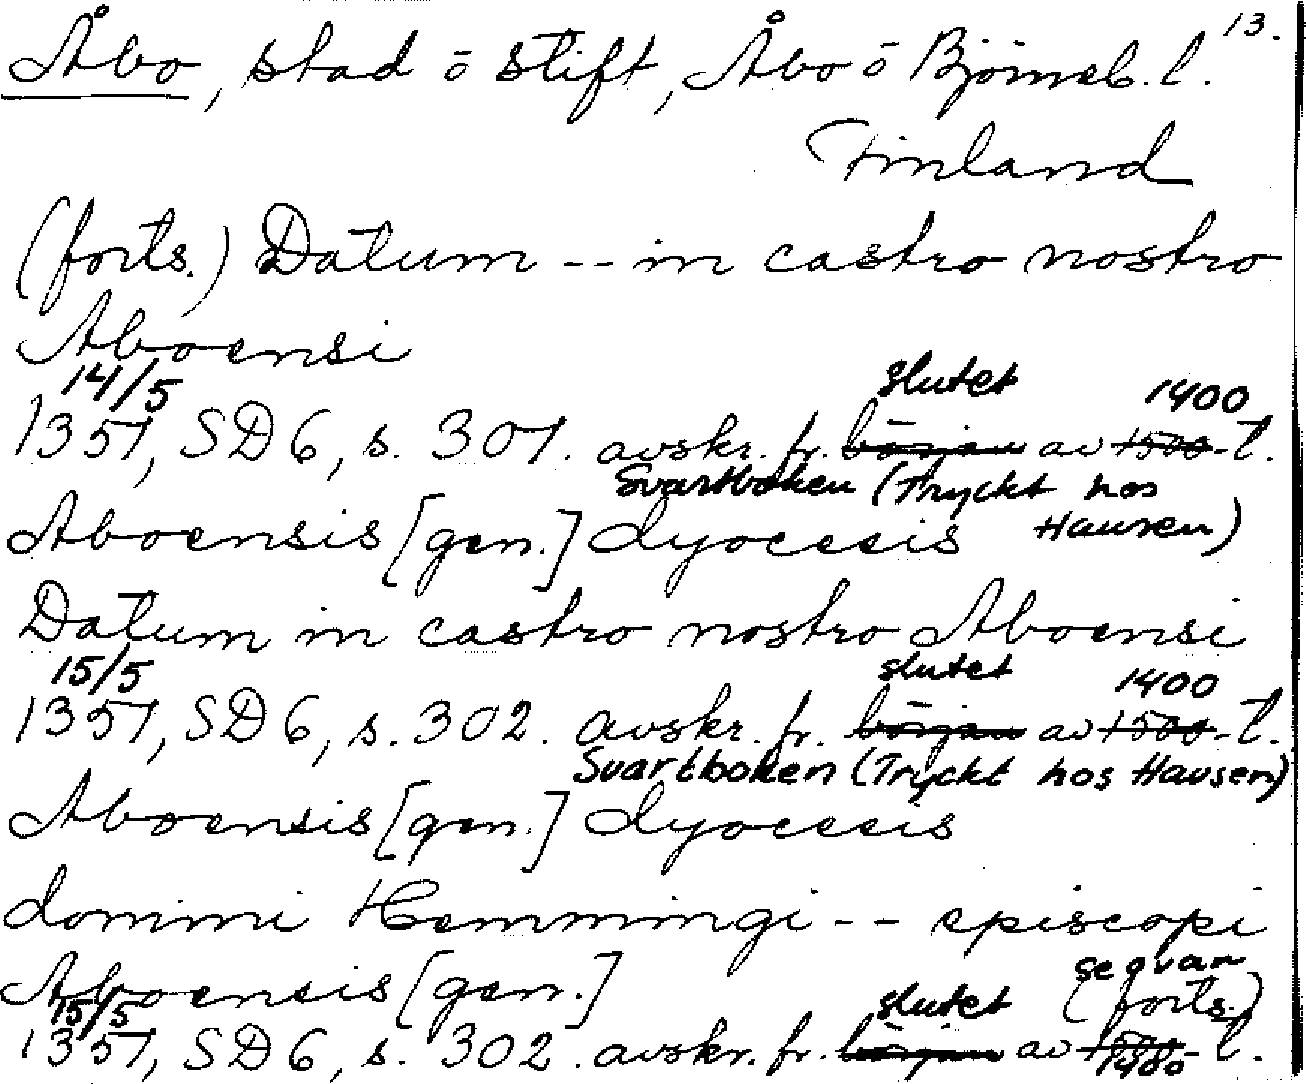 13.
Åbo, stad o stift, Åbo o Björneb. l.
Finland
(forts.) Datum -- in castro nostro
Aboensi
14/5 slutet 1400
1357, SD 6, s. 301. avskr. fr. början av 1500-t.
Svartboken (Tryckt hos
Hausen)
Aboensis [gen.] dyocesis
Datum in castro nostro Aboensi
15/5 slutet 1400
1357, SD 6, s. 302. avskr. fr. början av 1500-t.
Svartboken (Tryckt hos Hausen)
Aboensis [gen.] dyocesis
domini Hemmingi -- episcopi
Aboensis [gen.] se ovan
(forts.)
15/5 slutet
1357, SD 6, s. 302. avskr. fr. början av 1500-t.
1400